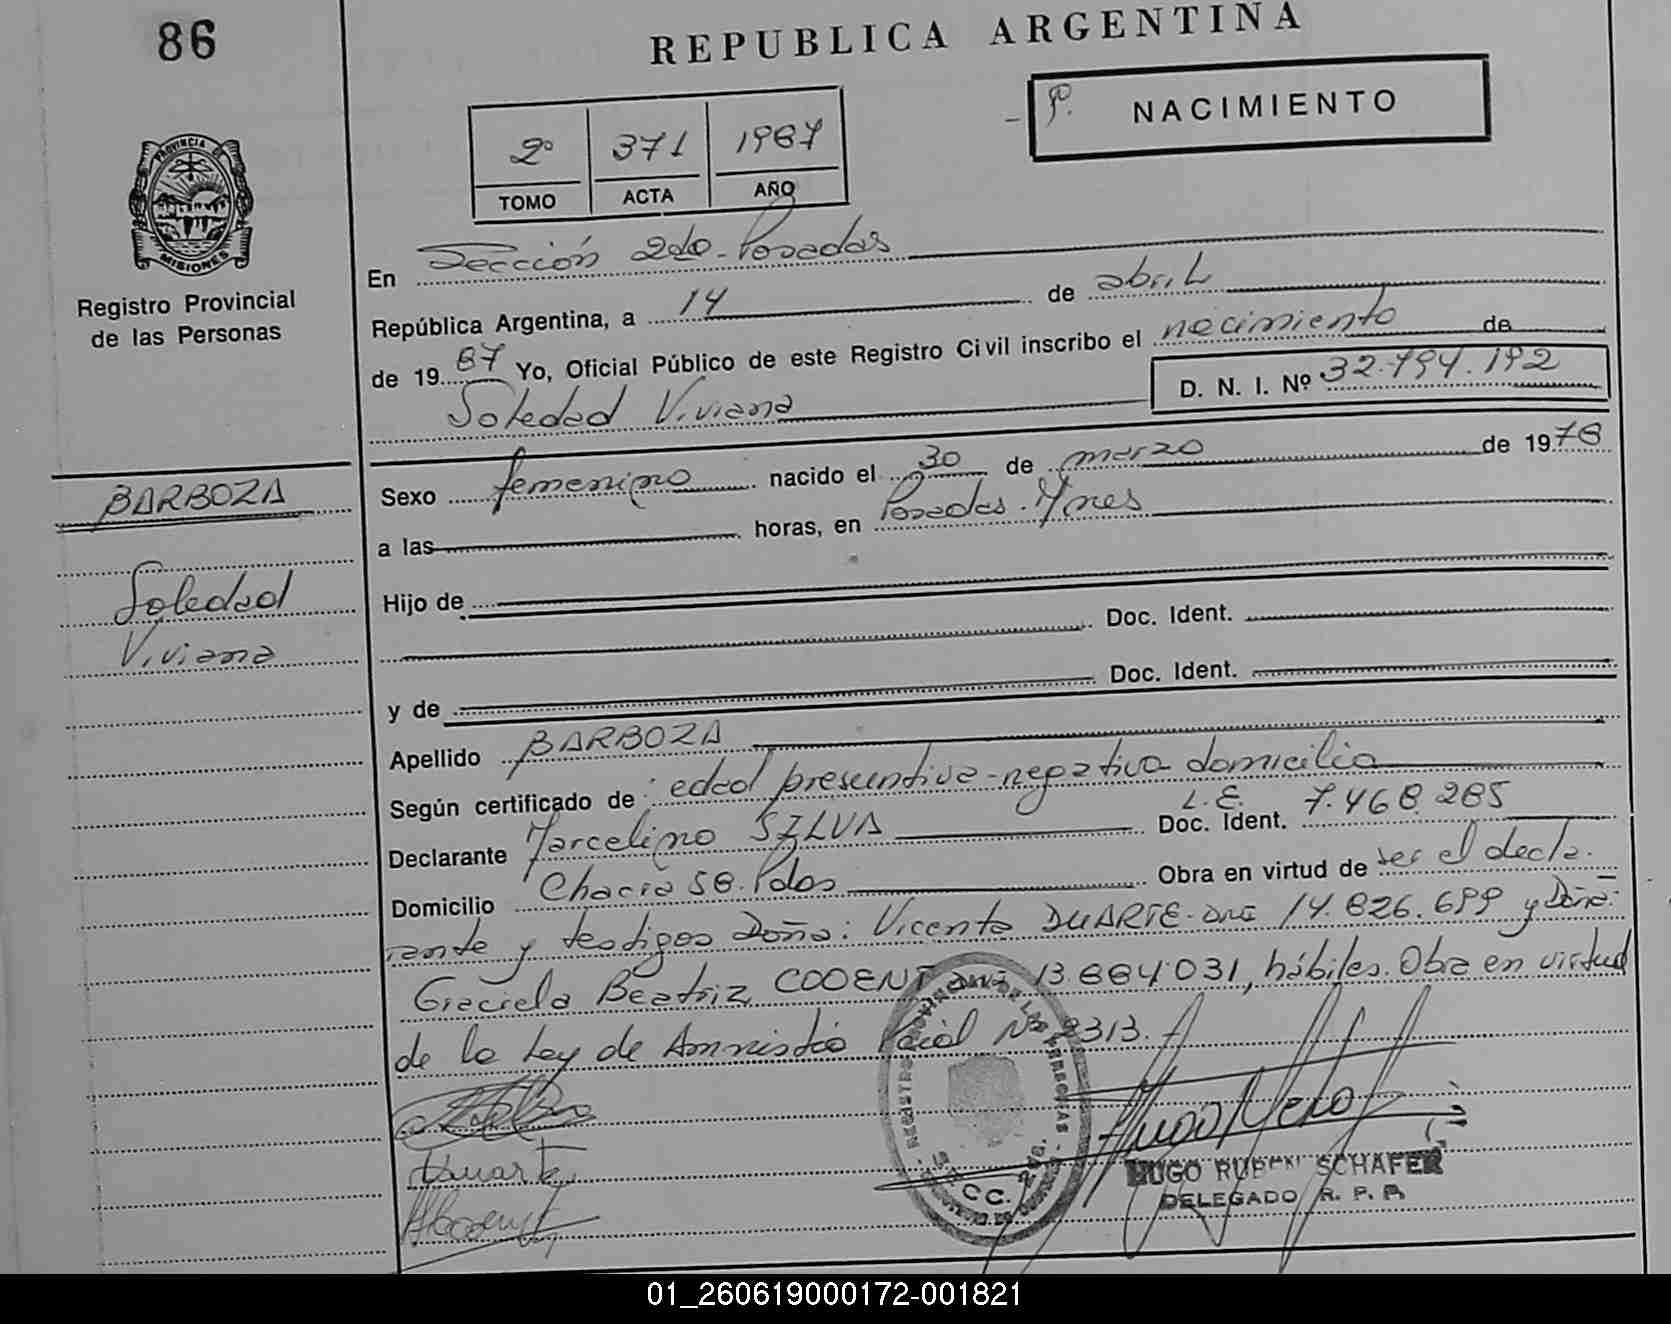 86
REPUBLICA ARGENTINA
2º 371 1987
TOMO ACTA AÑO
NACIMIENTO
PROVINCIA DE
MISIONES
Registro Provincial
de las Personas
En Sección 2do - Posadas
República Argentina, a 14 de abril
de 1987 Yo, Oficial Público de este Registro Civil inscribo el nacimiento de
Soledad Viviana D. N. I. Nº 32.794.192
BARBOZA
Soledad
Viviana
Sexo femenino nacido el 30 de marzo de 1978
a las horas, en Posadas. Mnes
Hijo de
Doc. Ident.
y de Doc. Ident.
Apellido BARBOZA
Según certificado de: edad presuntiva - negativa domicilio
Declarante Marcelino SILVA Doc. Ident. L.E. 7.468.285
Domicilio Chacra 58. Pdas Obra en virtud de ser el decla-
rante y testigos Doña: Vicenta DUARTE. DNI 14.826.699 y Doña:
Graciela Beatriz DNI 13.884.031, hábiles. Obra en virtud
de la Ley de Amnistía Pcial Nº 2313.
Duarte
HUGO RUBEN SCHAFER
DELEGADO R. P. P.
01_260619000172-001821